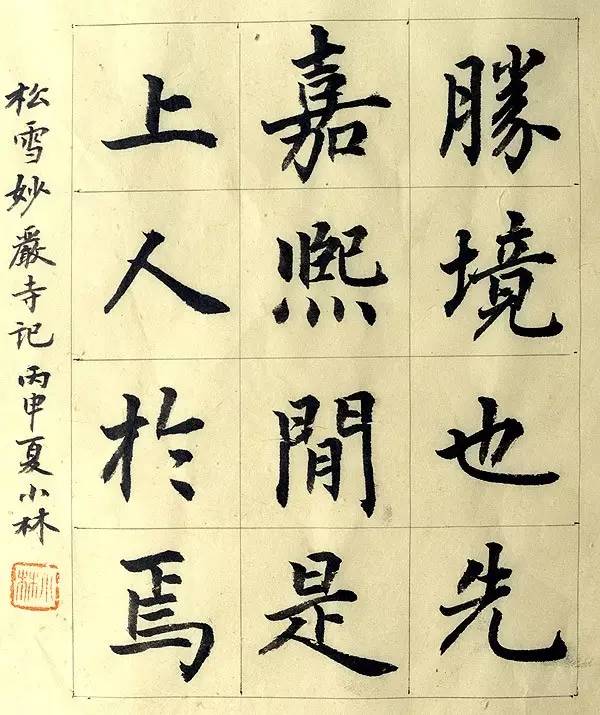 勝境也先
嘉熙閒是
上人於焉
松雪妙嚴寺記丙申夏小林
小林